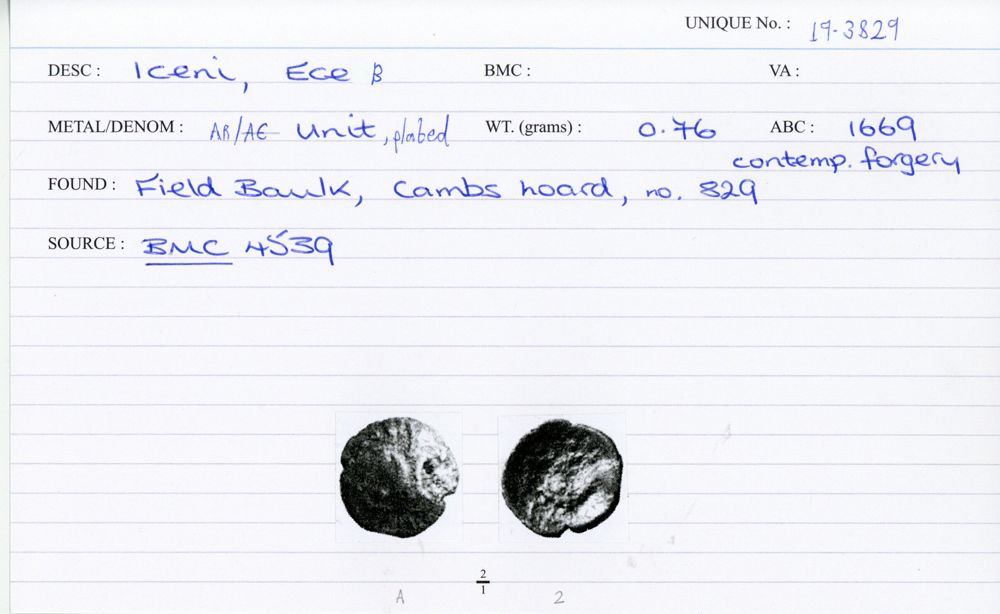 UNIQUE No. : 19-3829
DESC : Iceni, Ece B BMC : VA :
METAL/DENOM : AR/AE Unit, plated WT. (grams) : 0.76 ABC : 1669
contemp. forgery
FOUND : Field Baulk, Cambs hoard, no. 829
SOURCE : BMC 4539
2
1
A 2